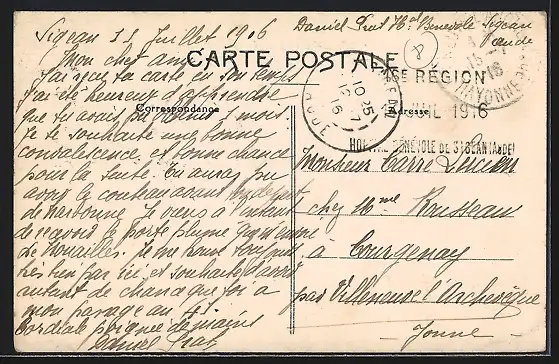 Sigean Juillet 1916
Daniel Prat Hal Bénévole Sigean
Aude
CARTE POSTALE
8
16e RÉGION
BAYONNE
Correspondance
Adresse
AUDE
10 25
7
16
1916
HOPITAL BÉNÉVOLE DE SIGEAN (AUDE)
Mon cher ami
J'ai reçu ta carte en son temps
j'ai été heureux d'apprendre
que tu avais 3 mois
Je te souhaite une bonne
convalescence et bonne chance
pour la suite. Tu aurais pu
avoir le couteau avant
de Narbonne. Je viens à l'instant
de recevoir le porte plume
de Nouailles. Je me trouve toujours
très bien par ici et souhaite d'avoir
autant de chance que j'ai à
mon passage au
Cordiale poignée de mains
Daniel Prat
Monsieur Carré Lucien
chez Mme Rousseau
à Courgenay
par Villeneuve l'Archevêque
Yonne